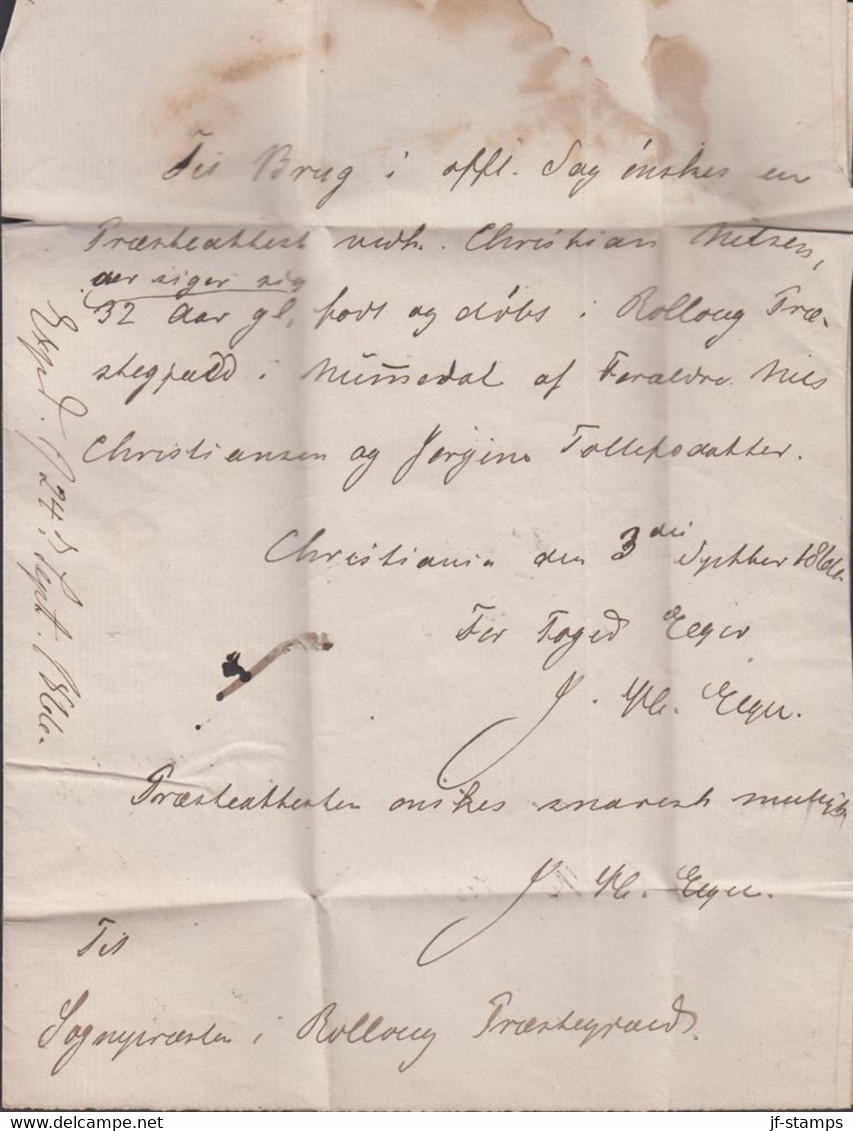 Til Brug i offl. Sag ónskes en
Præsteattest vedk. Christian Nilsen,
der siger sig
32 Aar gl, fodt og dóbt i Rolloug Præ-
stegjæld i Nummedal af Forældre Nils
Christiansen og Jørgine Tollefsdatter.
Christiania den 3die Septbr 1866
For Foged Eeger
J. Eeger.
Præsteattesten ønskes snarest mulig
J. Eeger.
Til
Sognepræsten i Rolloug Præstegjæld.
Expd. 24 Sept. 1866.
jf-stamps